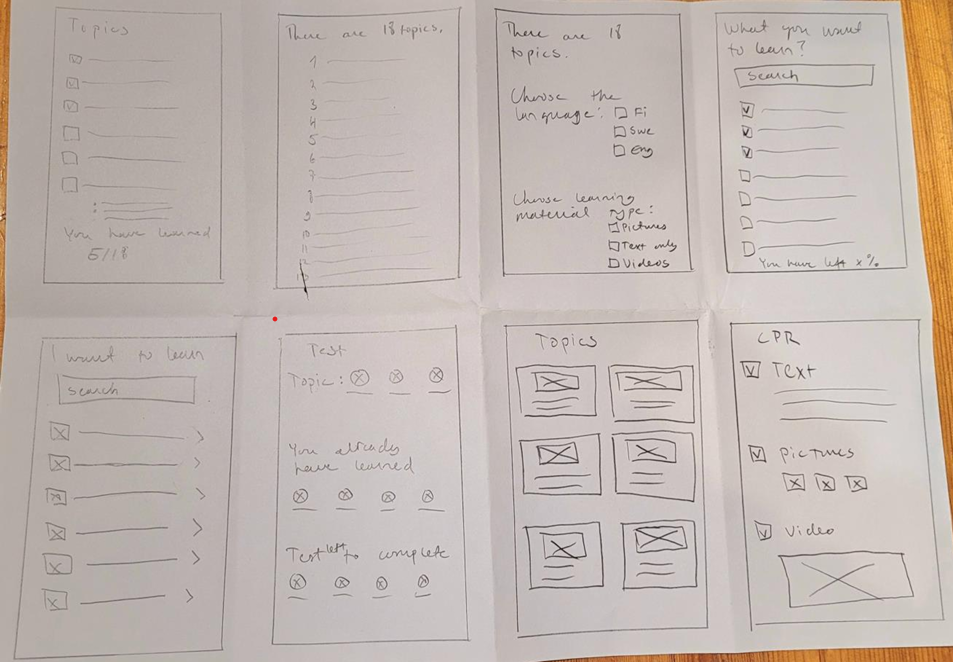 Topics
You have learned
5/18
There are 18 topics.
1
2
3
4
5
6
7
8
9
10
11
12
There are 18
topics.
Choose the
language:
Fi
Swe
Eng
Choose learning
material type:
Pictures
Text only
Videos
What you want
to learn?
Search
You have left x %
I want to learn
Search
Test
Topic:
You already
have learned
Test left to complete
Topics
CPR
Text
pictures
Video